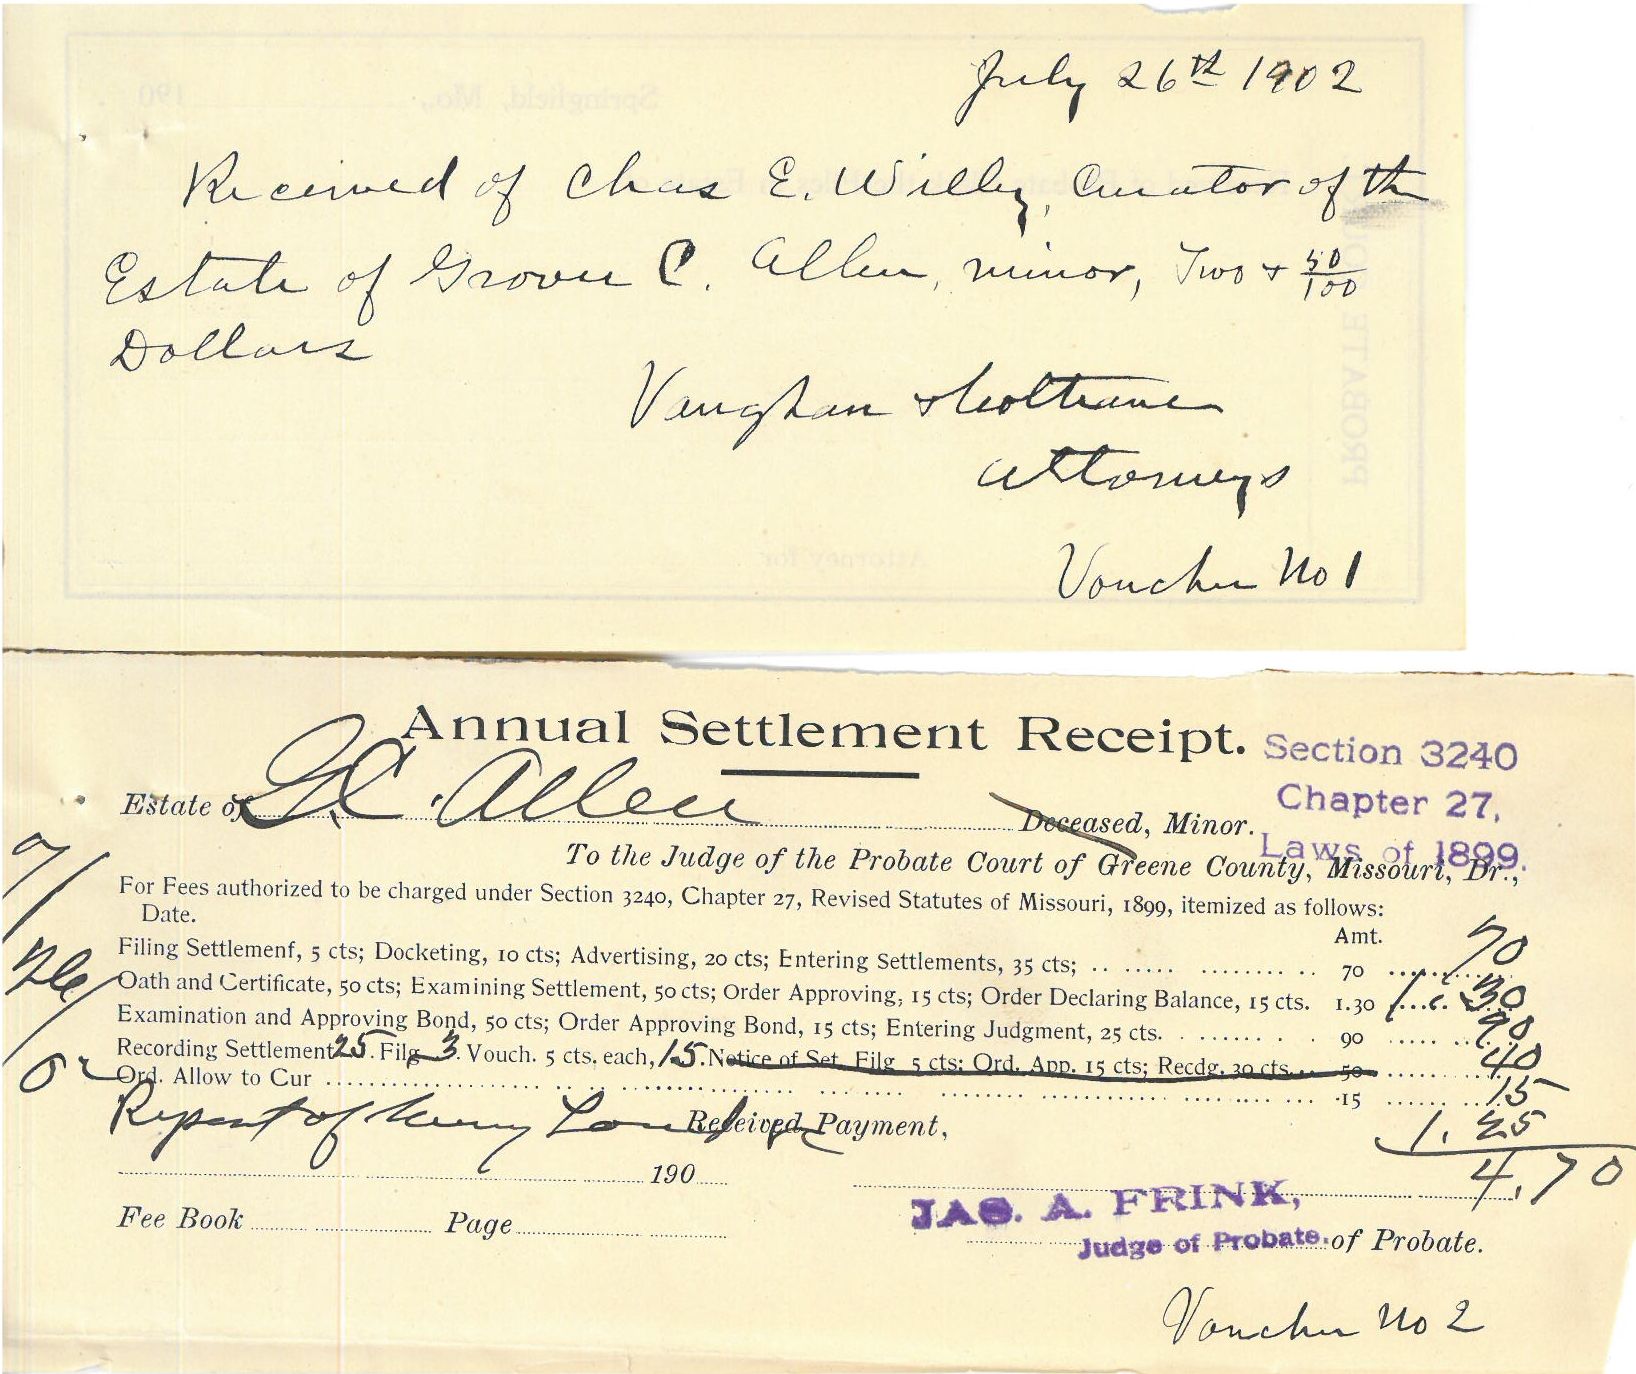 July 26th 1902
Received of Chas E. Willey, Curator of the
Estate of Grover C. Allen, minor, Two + 50/100
Dollars
Vaughan & Coltrane
Attorneys
Voucher No 1
Annual Settlement Receipt.
Section 3240
Chapter 27,
Laws of 1899.
Estate of G.C. Allen Deceased, Minor.
To the Judge of the Probate Court of Greene County, Missouri, Dr.,
For Fees authorized to be charged under Section 3240, Chapter 27, Revised Statutes of Missouri, 1899, itemized as follows:
Date. Amt.
7/26/02
Filing Settlemenf, 5 cts; Docketing, 10 cts; Advertising, 20 cts; Entering Settlements, 35 cts; 70 70
Oath and Certificate, 50 cts; Examining Settlement, 50 cts; Order Approving, 15 cts; Order Declaring Balance, 15 cts. 1.30 1.30
Examination and Approving Bond, 50 cts; Order Approving Bond, 15 cts; Entering Judgment, 25 cts. 90 90
Recording Settlement 25. Filg 3. Vouch. 5 cts. each, 15. Notice of Set. Filg 5 cts; Ord. App. 15 cts; Recdg. 30 cts. 50 40
Ord. Allow to Cur .15 15
Report of 1.25
Received Payment,
4.70
190
JAS. A. FRINK,
Fee Book Page
Judge of Probate. of Probate.
Voucher No 2